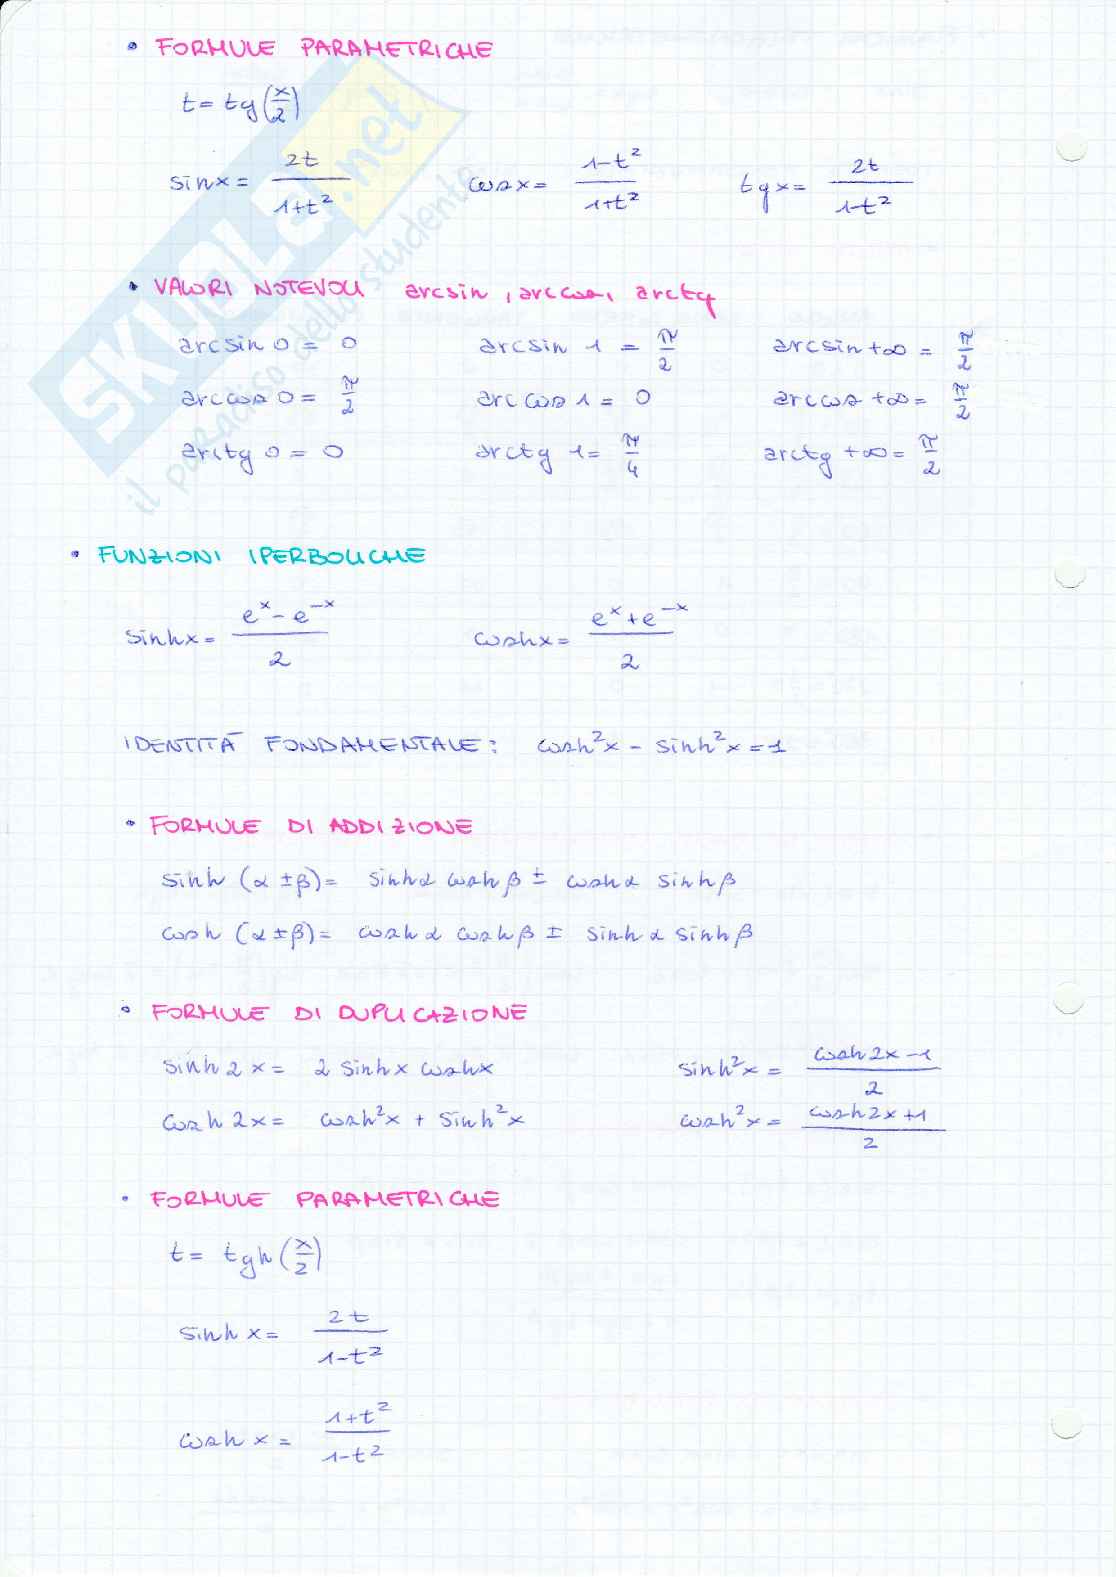 • FORMULE PARAMETRICHE
t = tg(x/2)
sin x = 2t/(1+t²)   cos x = (1-t²)/(1+t²)   tg x = 2t/(1-t²)
• VALORI NOTEVOLI arcsin, arccos, arctg
arcsin 0 = 0   arcsin 1 = π/2   arcsin +∞ = π/2
arccos 0 = π/2   arccos 1 = 0   arccos +∞ = π/2
arctg 0 = 0   arctg 1 = π/4   arctg +∞ = π/2
• FUNZIONI IPERBOLICHE
sinh x = (e^x - e^-x)/2   cosh x = (e^x + e^-x)/2
IDENTITÀ FONDAMENTALE: cosh²x - sinh²x = 1
• FORMULE DI ADDIZIONE
sinh (α ± β) = sinh α cosh β ± cosh α sinh β
cosh (α ± β) = cosh α cosh β ± sinh α sinh β
• FORMULE DI DUPLICAZIONE
sinh 2x = 2 sinh x cosh x   sinh²x = (cosh 2x - 1)/2
cosh 2x = cosh²x + sinh²x   cosh²x = (cosh 2x + 1)/2
• FORMULE PARAMETRICHE
t = tgh(x/2)
sinh x = 2t/(1-t²)
cosh x = (1+t²)/(1-t²)
SKUOLA.net
il paradiso dello studente